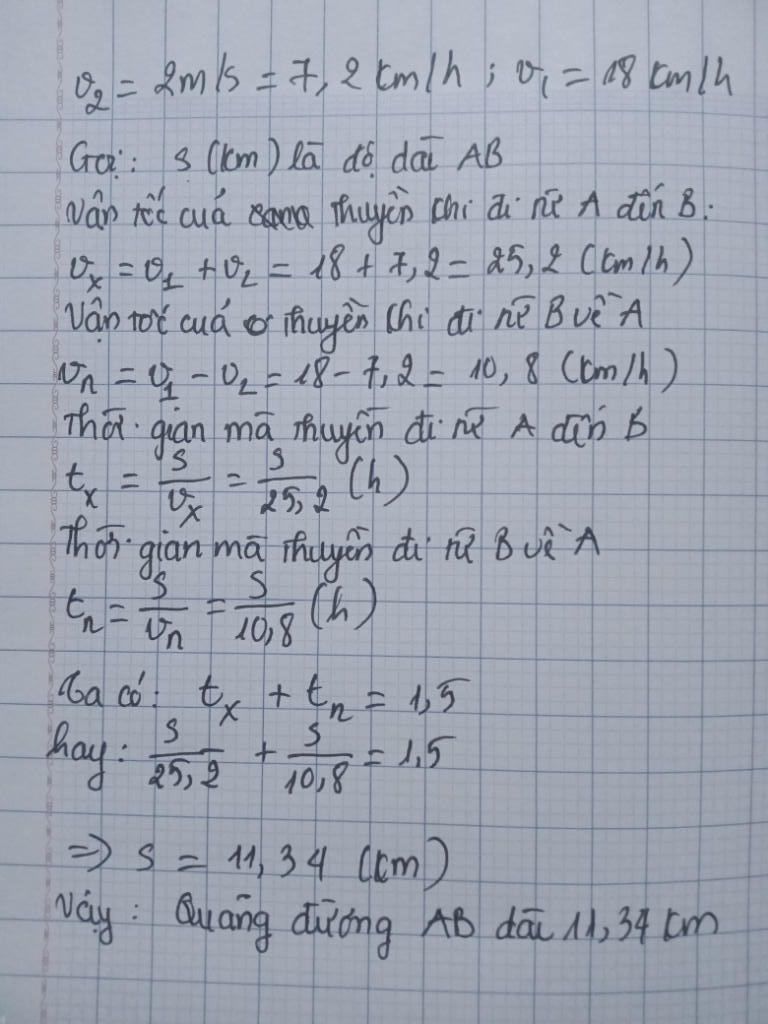 v₂ = 2m/s = 7,2 km/h ; v₁ = 18 km/h
Gọi: s (km) là độ dài AB
Vận tốc của thuyền khi đi từ A đến B:
vₓ = v₁ + v₂ = 18 + 7,2 = 25,2 (km/h)
Vận tốc của thuyền khi đi từ B về A
vₙ = v₁ - v₂ = 18 - 7,2 = 10,8 (km/h)
Thời gian mà thuyền đi từ A đến B
tₓ = s/vₓ = s/25,2 (h)
Thời gian mà thuyền đi từ B về A
tₙ = s/vₙ = s/10,8 (h)
Ta có: tₓ + tₙ = 1,5
hay: s/25,2 + s/10,8 = 1,5
=> s = 11,34 (km)
Vậy: Quãng đường AB dài 11,34 km